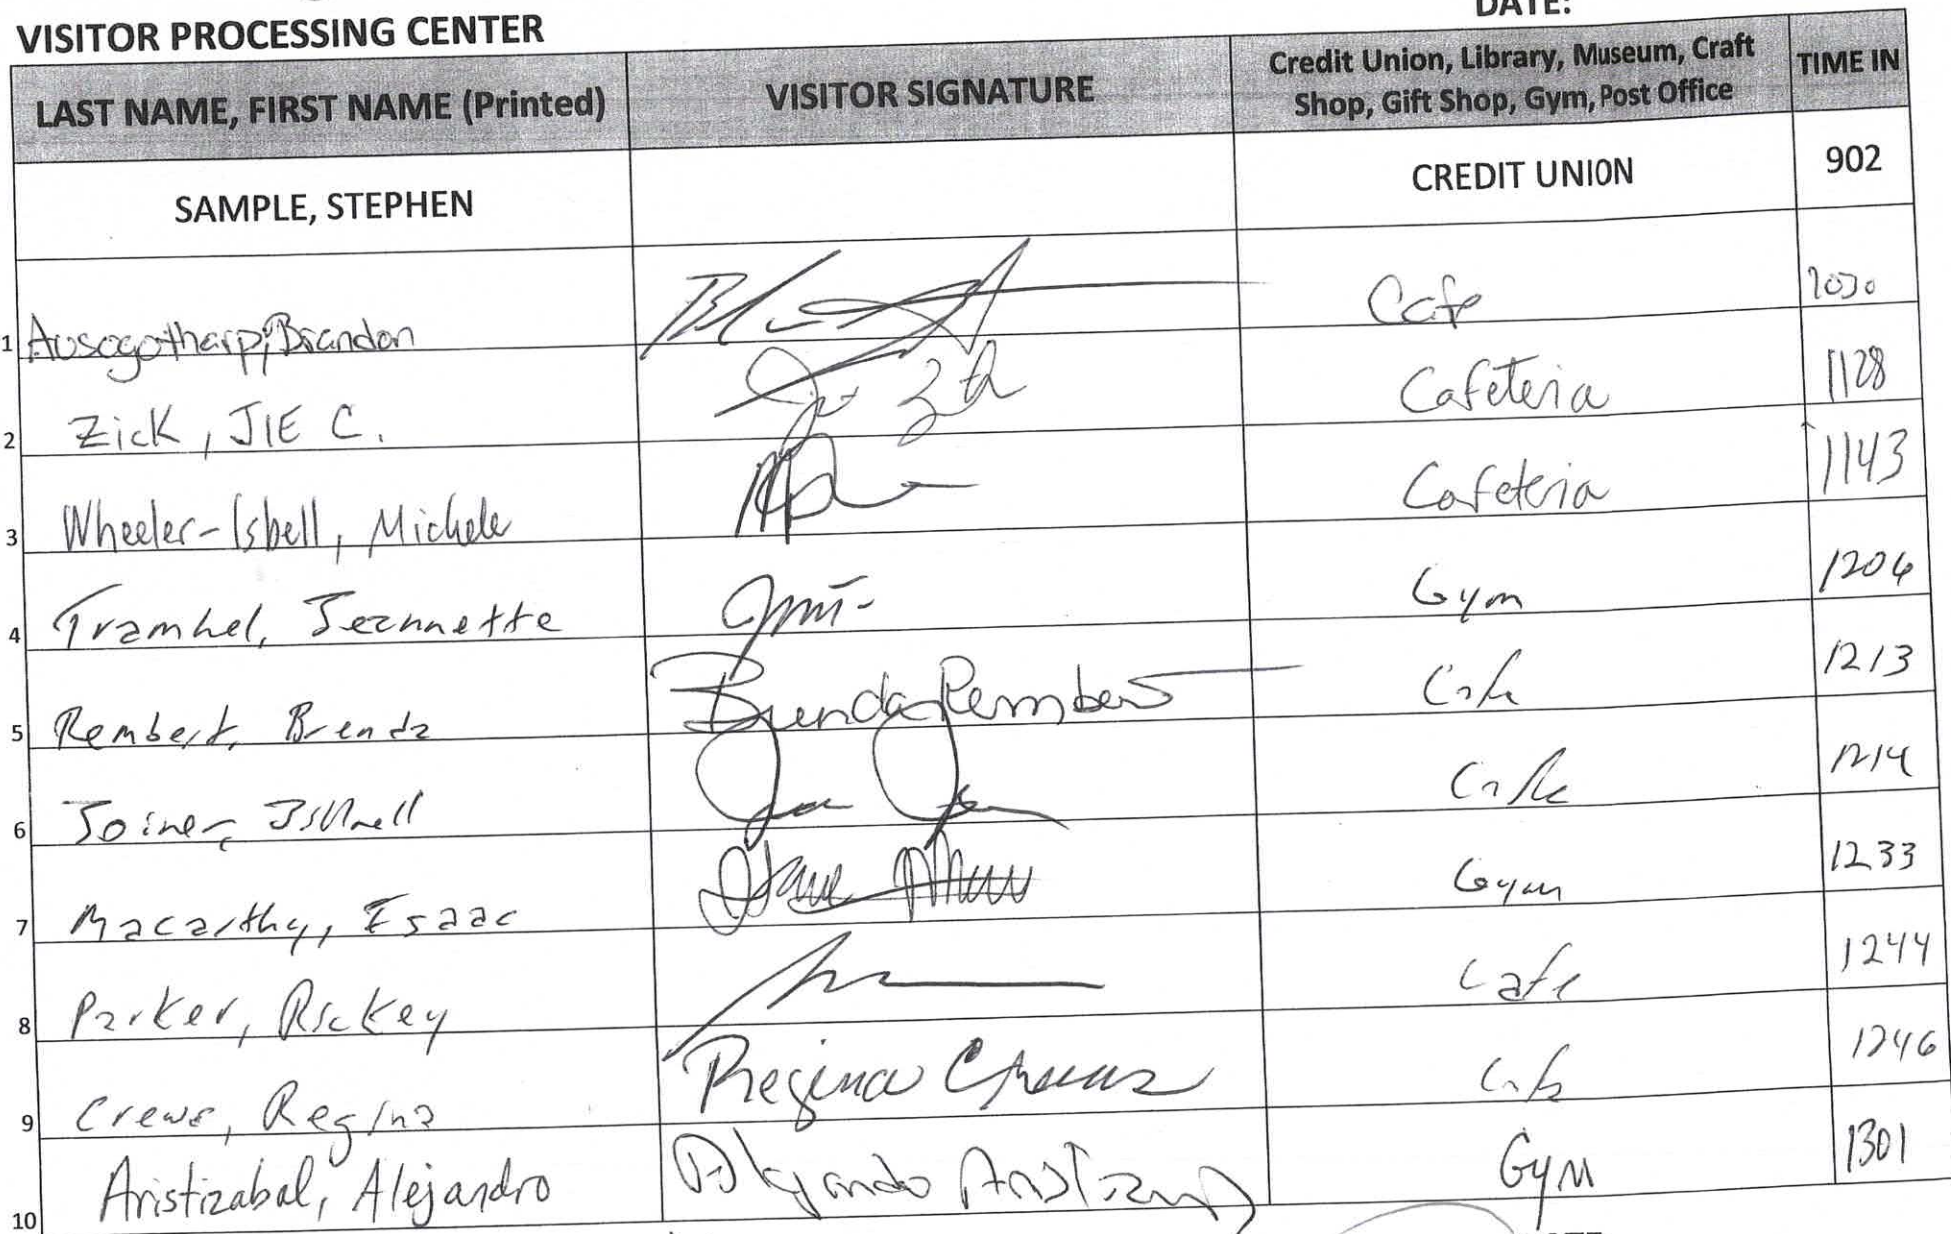 DATE:
VISITOR PROCESSING CENTER
LAST NAME, FIRST NAME (Printed) VISITOR SIGNATURE Credit Union, Library, Museum, Craft Shop, Gift Shop, Gym, Post Office TIME IN
SAMPLE, STEPHEN CREDIT UNION 902
1 Ausogotharp, Brandon Cafe
2 Zick, JIE C. Cafeteria 1128
3 Wheeler-Isbell, Michele Cafeteria 1143
4 Tramhel, Jeannette Gym 1206
5 Rembert, Brenda Brenda Rembert Cafe 1213
6 Joiner, Cafe 1214
7 Macarthy, Isaac Gym 1233
8 Parker, Rickey Cafe 1244
9 Crews, Regina Regina Crews Cafe 1246
10 Aristizabal, Alejandro Alejandro Gym 1301